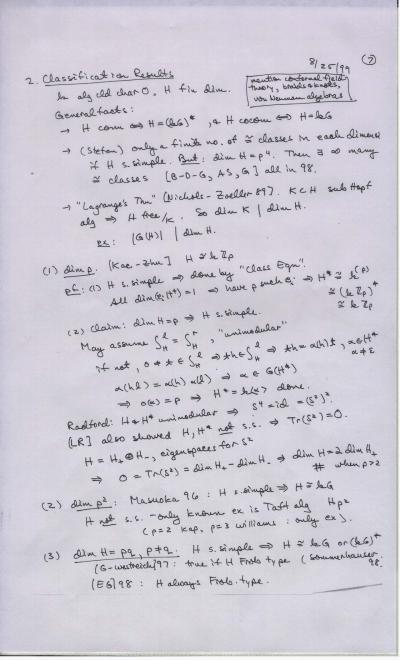 8/25/99 (7)
mention conformal field
theory, braids & knots,
von Neumann algebras
2. Classification Results
k alg cld char 0, H fin dim.
General facts:
→ H comm ⟺ H = (kG)*, & H cocom ⟺ H = kG
→ (Stefan) only a finite no. of ≅ classes in each dimension
if H s.simple. But: dim H = p⁴. Then ∃ ∞ many
≅ classes [B-D-G, AS, G] all in 98.
→ "Lagrange's Thm" (Nichols-Zoeller 89). K ⊂ H sub Hopf
alg ⇒ H free/K. So dim K | dim H.
ex: |G(H)| | dim H.
(1) dim p. [Kac-Zhu] H ≅ kZp
pf: (1) H s.simple ⇒ done by "Class Eqn".
All dim(eᵢH*) = 1 ⇒ have p such eᵢ ⇒ H* ≅ k^(p)
≅ (kZp)*
≅ kZp
(2) Claim: dim H = p ⇒ H s.simple.
May assume ∫ₕˡ = ∫ₕʳ, "unimodular"
if not, 0 ≠ t ∈ ∫ₕˡ ⇒ th ∈ ∫ₕˡ ⇒ th = α(h)t, α ∈ H*
α ≠ ε
α(hl) = α(h) α(l) ⇒ α ∈ G(H*)
⇒ o(α) = p ⇒ H* = k⟨α⟩ done.
Radford: H & H* unimodular ⇒ S⁴ = id = (S²)².
[LR] also showed H, H* not s.s. ⇒ Tr(S²) = 0.
H = H₊ ⊕ H₋, eigenspaces for S²
⇒ 0 = Tr(S²) = dim H₊ - dim H₋ ⇒ dim H = 2 dim H₊
# when p>2
(2) dim p²: Masuoka 96: H s.simple ⇒ H ≅ kG
H not s.s. - only known ex is Taft alg Hp²
(p=2 Kap, p=3 Williams: only ex).
(3) dim H = pq, p≠q: H s.simple ⇒ H ≅ kG or (kG)*
[G-Westreich] 97: true if H Frob type (Sommerhäuser
98.
[EG] 98: H always Frob. type.